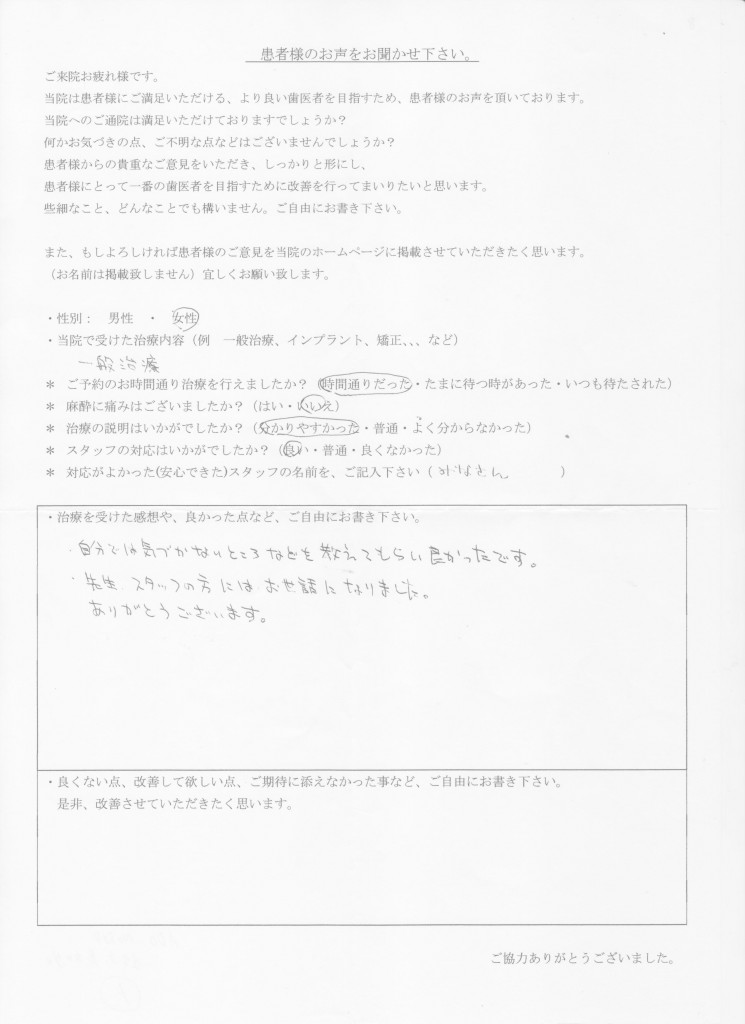 患者様のお声をお聞かせ下さい。
ご来院お疲れ様です。
当院は患者様にご満足いただける、より良い歯医者を目指すため、患者様のお声を頂いております。
当院へのご通院は満足いただけておりますでしょうか？
何かお気づきの点、ご不明な点などはございませんでしょうか？
患者様からの貴重なご意見をいただき、しっかりと形にし、
患者様にとって一番の歯医者を目指すために改善を行ってまいりたいと思います。
些細なこと、どんなことでも構いません。ご自由にお書き下さい。
また、もしよろしければ患者様のご意見を当院のホームページに掲載させていただきたく思います。
（お名前は掲載致しません）宜しくお願い致します。
・性別： 男性 ・ 女性
・当院で受けた治療内容（例 一般治療、インプラント、矯正、、、など）
一般治療
＊ ご予約のお時間通り治療を行えましたか？（時間通りだった・たまに待つ時があった・いつも待たされた）
＊ 麻酔に痛みはございましたか？（はい・いいえ）
＊ 治療の説明はいかがでしたか？（分かりやすかった・普通・よく分からなかった）
＊ スタッフの対応はいかがでしたか？（良い・普通・良くなかった）
＊ 対応がよかった(安心できた)スタッフの名前を、ご記入下さい（ みなさん ）
・治療を受けた感想や、良かった点など、ご自由にお書き下さい。
・自分では気づかないところなどを教えてもらい良かったです。
・先生 スタッフの方には お世話になりました。
ありがとうございます。
・良くない点、改善して欲しい点、ご期待に添えなかった事など、ご自由にお書き下さい。
是非、改善させていただきたく思います。
ご協力ありがとうございました。